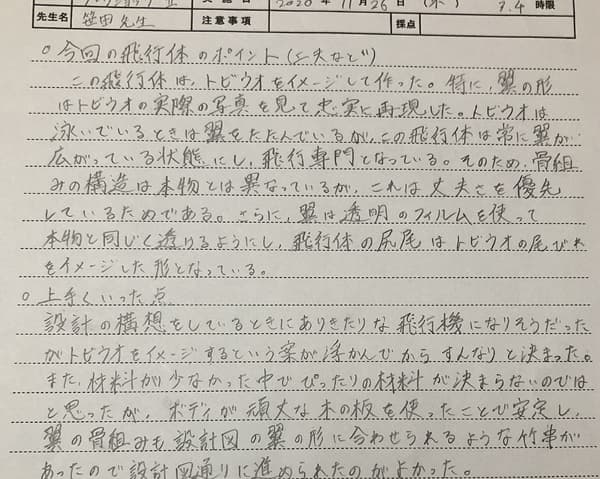 2020 年 11 月 26 日 (木) 3.4 時限
先生名 笹田先生 注意事項 採点
○ 今回の飛行体のポイント(工夫など)
この飛行体は、トビウオをイメージして作った。特に、翼の形
はトビウオの実際の写真を見て忠実に再現した。トビウオは
泳いでいるときは翼をたたんでいるが、この飛行体は常に翼が
広がっている状態にし、飛行専門となっている。そのため、骨組
みの構造は本物とは異なっているが、これは丈夫さを優先
しているためである。さらに、翼は透明のフィルムを使って
本物と同じく透けるようにし、飛行体の尻尾はトビウオの尾びれ
をイメージした形となっている。
○ 上手くいった点
設計の構想をしているときにありきたりな飛行機になりそうだった
がトビウオをイメージするという案が浮かんでから、すんなりと決まった。
また、材料が少なかった中でぴったりの材料が決まらないのでは
と思ったが、ボディが頑丈な木の板を使ったことで安定し、
翼の骨組みも設計図の翼の形に合わせられるような竹串が
あったので設計図通りに進められたのがよかった。